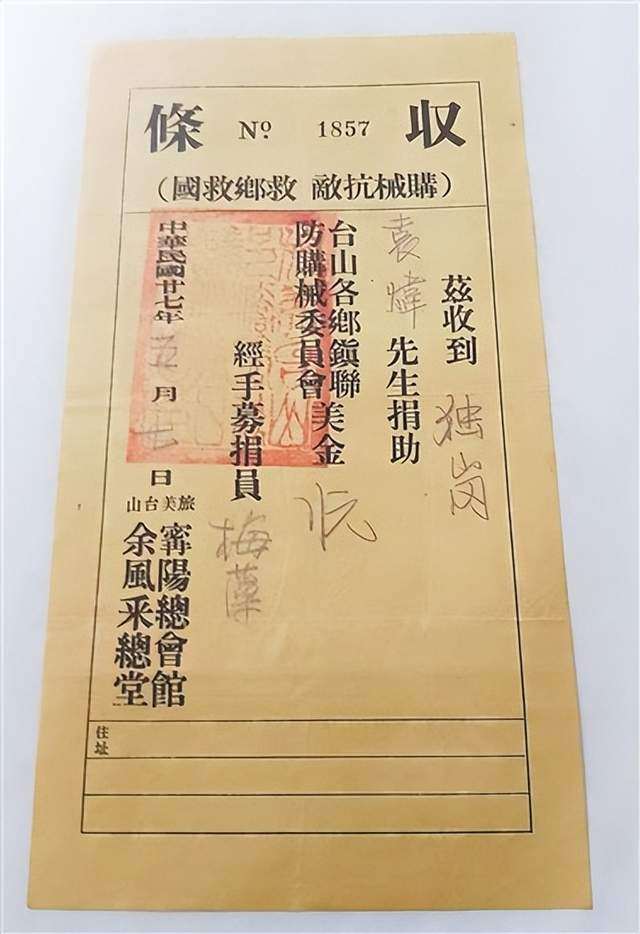 收 Nº 1857 條
（購械抗敵 救鄉救國）
茲收到 独岗
袁煒 先生捐助
台山各鄉鎮聯
防購械委員會 美金
經手募捐員 梅
中華民國廿七年 五 月 七 日
旅美台山
甯陽總會館
余風采總堂
住址